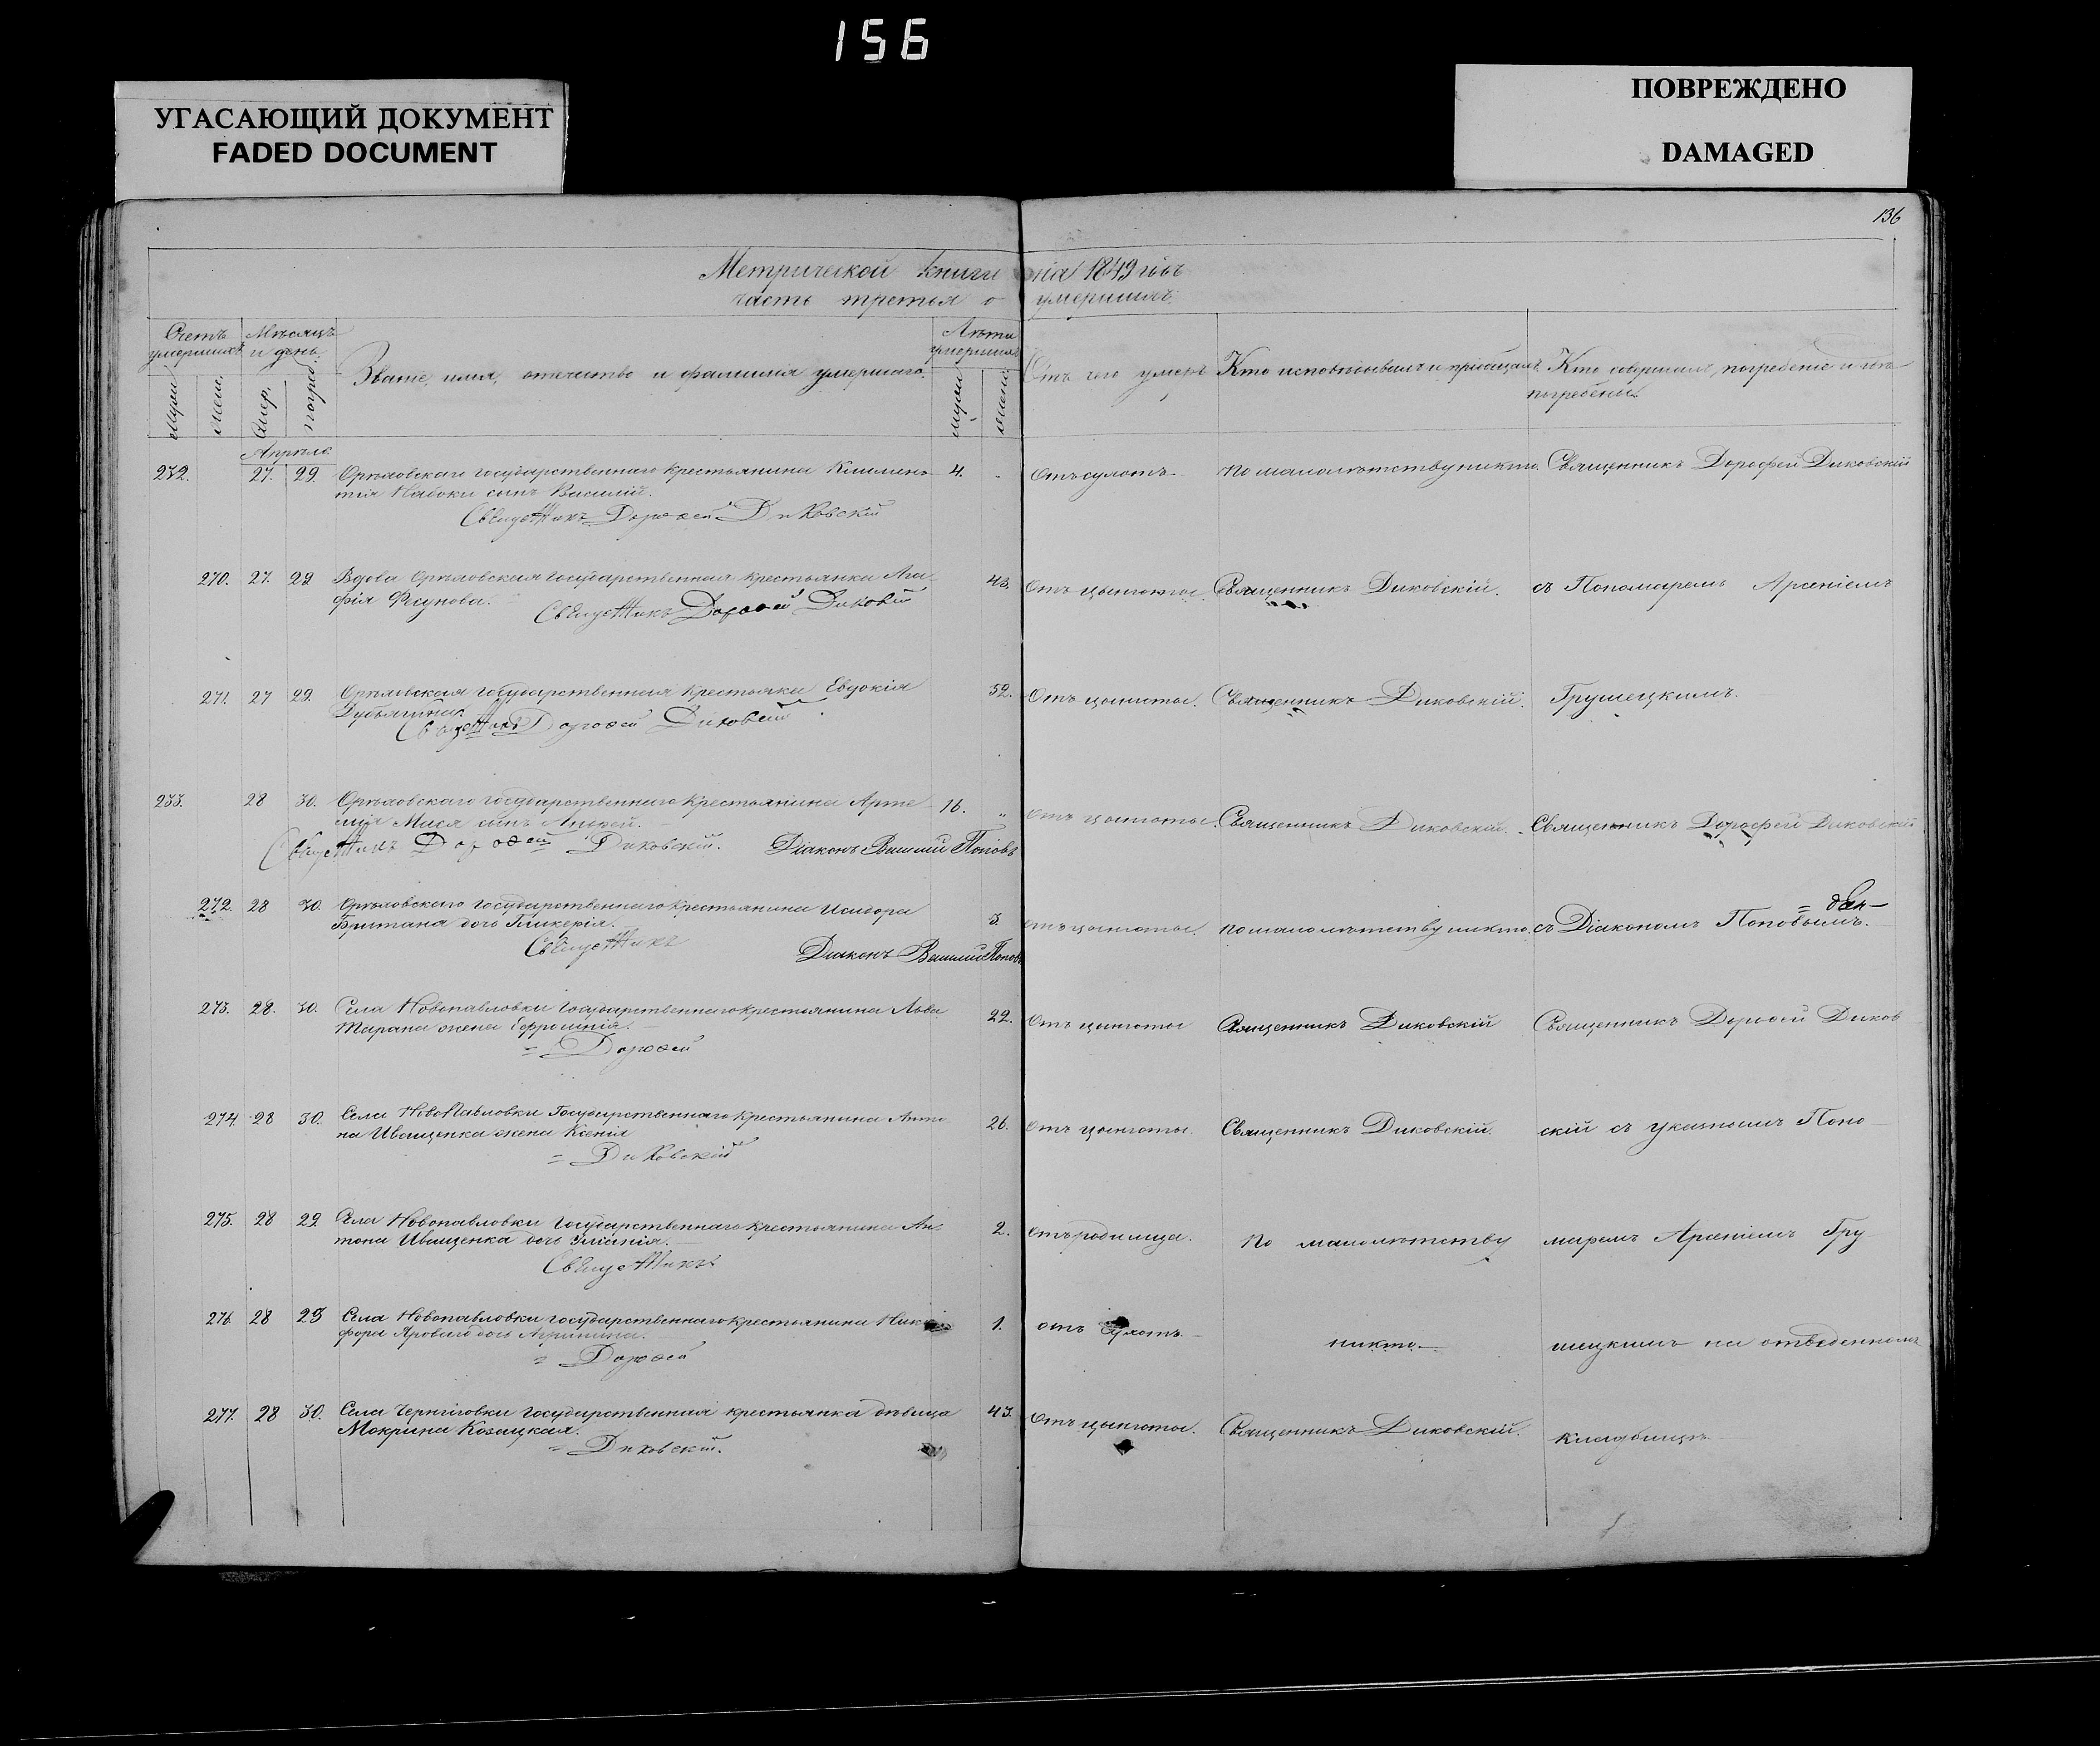 156
УГАСАЮЩИЙ ДОКУМЕНТ
FADED DOCUMENT
ПОВРЕЖДЕНО
DAMAGED
136
Метрической книги на 1849 годъ
часть третья о умершихъ
Счетъ умершихъ
Мѣсяцъ и день.
Званіе, имя, отечество и фамилія умершаго.
Лѣта умершихъ
Отъ чего умеръ
Кто исповѣдывалъ и пріобщалъ.
Кто совершалъ погребеніе и гдѣ
погребены.
Муж.
Жен.
Умер.
погреб.
муж.
женс.
Апрѣль
272. 27. 29. Орѣховскаго государственнаго крестьянина Климен- 4. Отъ сухотъ По малолѣтству никто. Священникъ Дорофей Диковскій
тія Набоки сынъ Василій.
Священникъ Дорофей Диковскій
270. 27. 29 Вдова Орѣховская государственная крестьянка Ага- 43. Отъ цынготы Священникъ Диковскій. съ Пономаремъ Арсеніемъ
фія Фесунова.
Священникъ Дорофей Диковскій
271. 27 29. Орѣховская государственная крестьянка Евдокія 52. Отъ цынготы. Священникъ Диковскій. Грушецкимъ.
Священникъ Дорофей Диковскій
273. 28 30. Орѣховскаго государственнаго крестьянина Арте- 16. „ Отъ цынготы. Священникъ Диковскій. Священникъ Дорофей Диковскій
мія сынъ Андрей.
Священникъ Дорофей Диковскій. Діаконъ Василій Поповъ
272. 28 30. Орѣховскаго государственнаго крестьянина Исидора 3. Отъ цынготы. По малолѣтству никто. съ Діакономъ Поповымъ.
Британа дочь Гликерія.
Священникъ Діаконъ Василій Поповъ
273. 28. 30. Села Новопавловки государственнаго крестьянина Льва 22. Отъ цынготы Священникъ Диковскій Священникъ Дорофей Диков
Тарана жена Ефросинія.
= Дорофей
274. 28 30. Села Новопавловки Государственнаго крестьянина Анто 26. Отъ цынготы. Священникъ Диковскій. скій съ указнымъ Поно
на Иващенка жена Ксенія
= Диковскій
275. 28 29 Села Новопавловки Государственнаго крестьянина Ан- 2. Отъ родимца. По малолѣтству маремъ Арсеніемъ Гру
тона Иващенка дочь
Священникъ
276. 28 29 Села Новопавловки государственнаго крестьянина Ники 1. отъ сухотъ. никто. шецкимъ на отведенномъ
фора Яроваго дочь Агрипина.
= Дорофей
277. 28 30. Села Черниговки Государственная крестьянка дѣвица 43. Отъ цынготы. Священникъ Диковскій. кладбищѣ.
Макрина Козацкая.
= Диковскій.